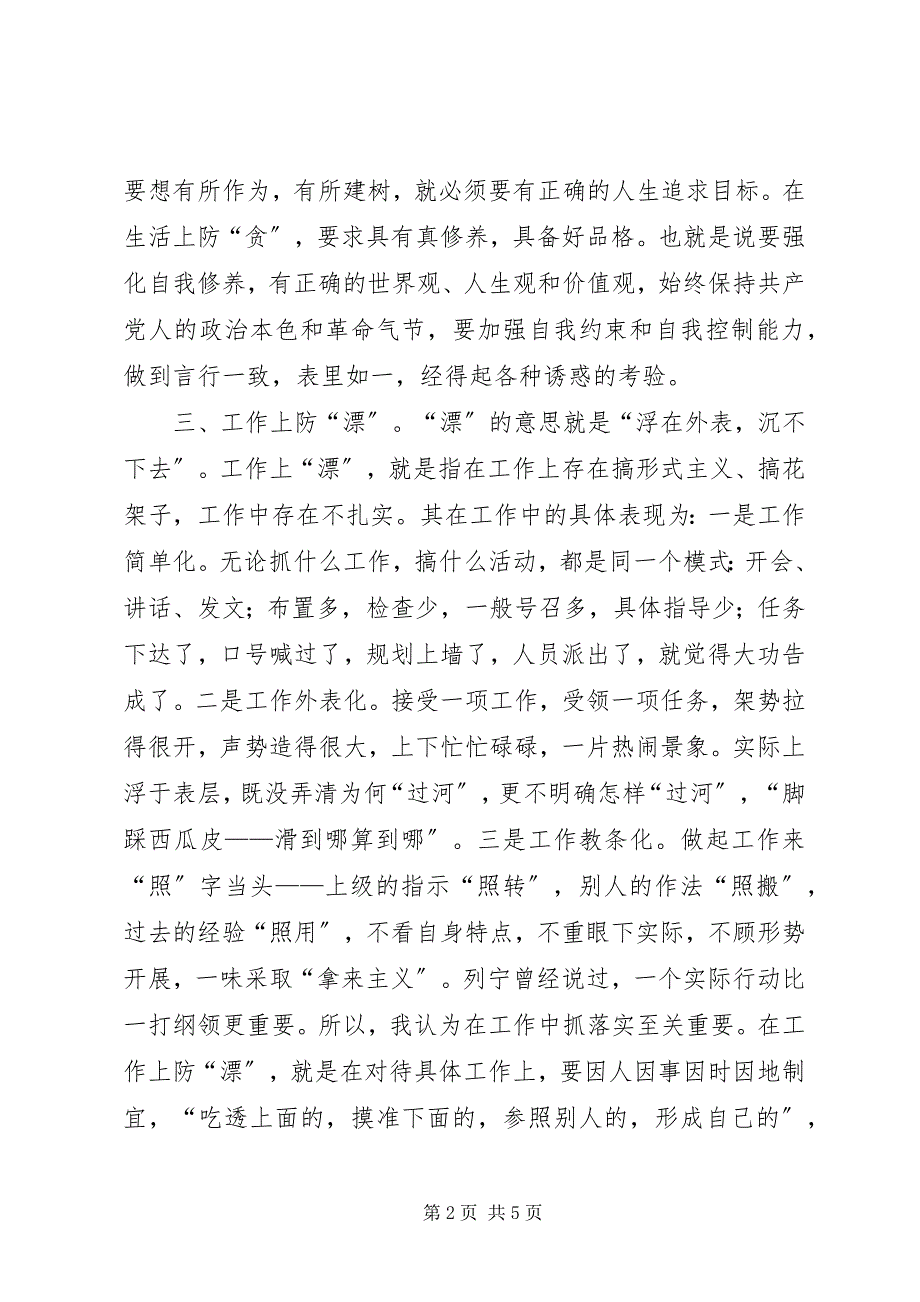 要想有所作为，有所建树，就必须要有正确的人生追求目标。在
生活上防“贪〞，要求具有真修养，具备好品格。也就是说要强
化自我修养，有正确的世界观、人生观和价值观，始终保持共产
党人的政治本色和革命气节，要加强自我约束和自我控制能力，
做到言行一致，表里如一，经得起各种诱惑的考验。
三、工作上防“漂〞。“漂〞的意思就是“浮在外表，沉不
下去〞。工作上“漂〞，就是指在工作上存在搞形式主义、搞花
架子，工作中存在不扎实。其在工作中的具体表现为：一是工作
简单化。无论抓什么工作，搞什么活动，都是同一个模式：开会、
讲话、发文；布置多，检查少，一般号召多，具体指导少；任务
下达了，口号喊过了，规划上墙了，人员派出了，就觉得大功告
成了。二是工作外表化。接受一项工作，受领一项任务，架势拉
得很开，声势造得很大，上下忙忙碌碌，一片热闹景象。实际上
浮于表层，既没弄清为何“过河〞，更不明确怎样“过河〞，“脚
踩西瓜皮——滑到哪算到哪〞。三是工作教条化。做起工作来
“照〞字当头——上级的指示“照转〞，别人的作法“照搬〞，
过去的经验“照用〞，不看自身特点，不重眼下实际，不顾形势
开展，一味采取“拿来主义〞。列宁曾经说过，一个实际行动比
一打纲领更重要。所以，我认为在工作中抓落实至关重要。在工
作上防“漂〞，就是在对待具体工作上，要因人因事因时因地制
宜，“吃透上面的，摸准下面的，参照别人的，形成自己的〞，
第 2 页 共 5 页